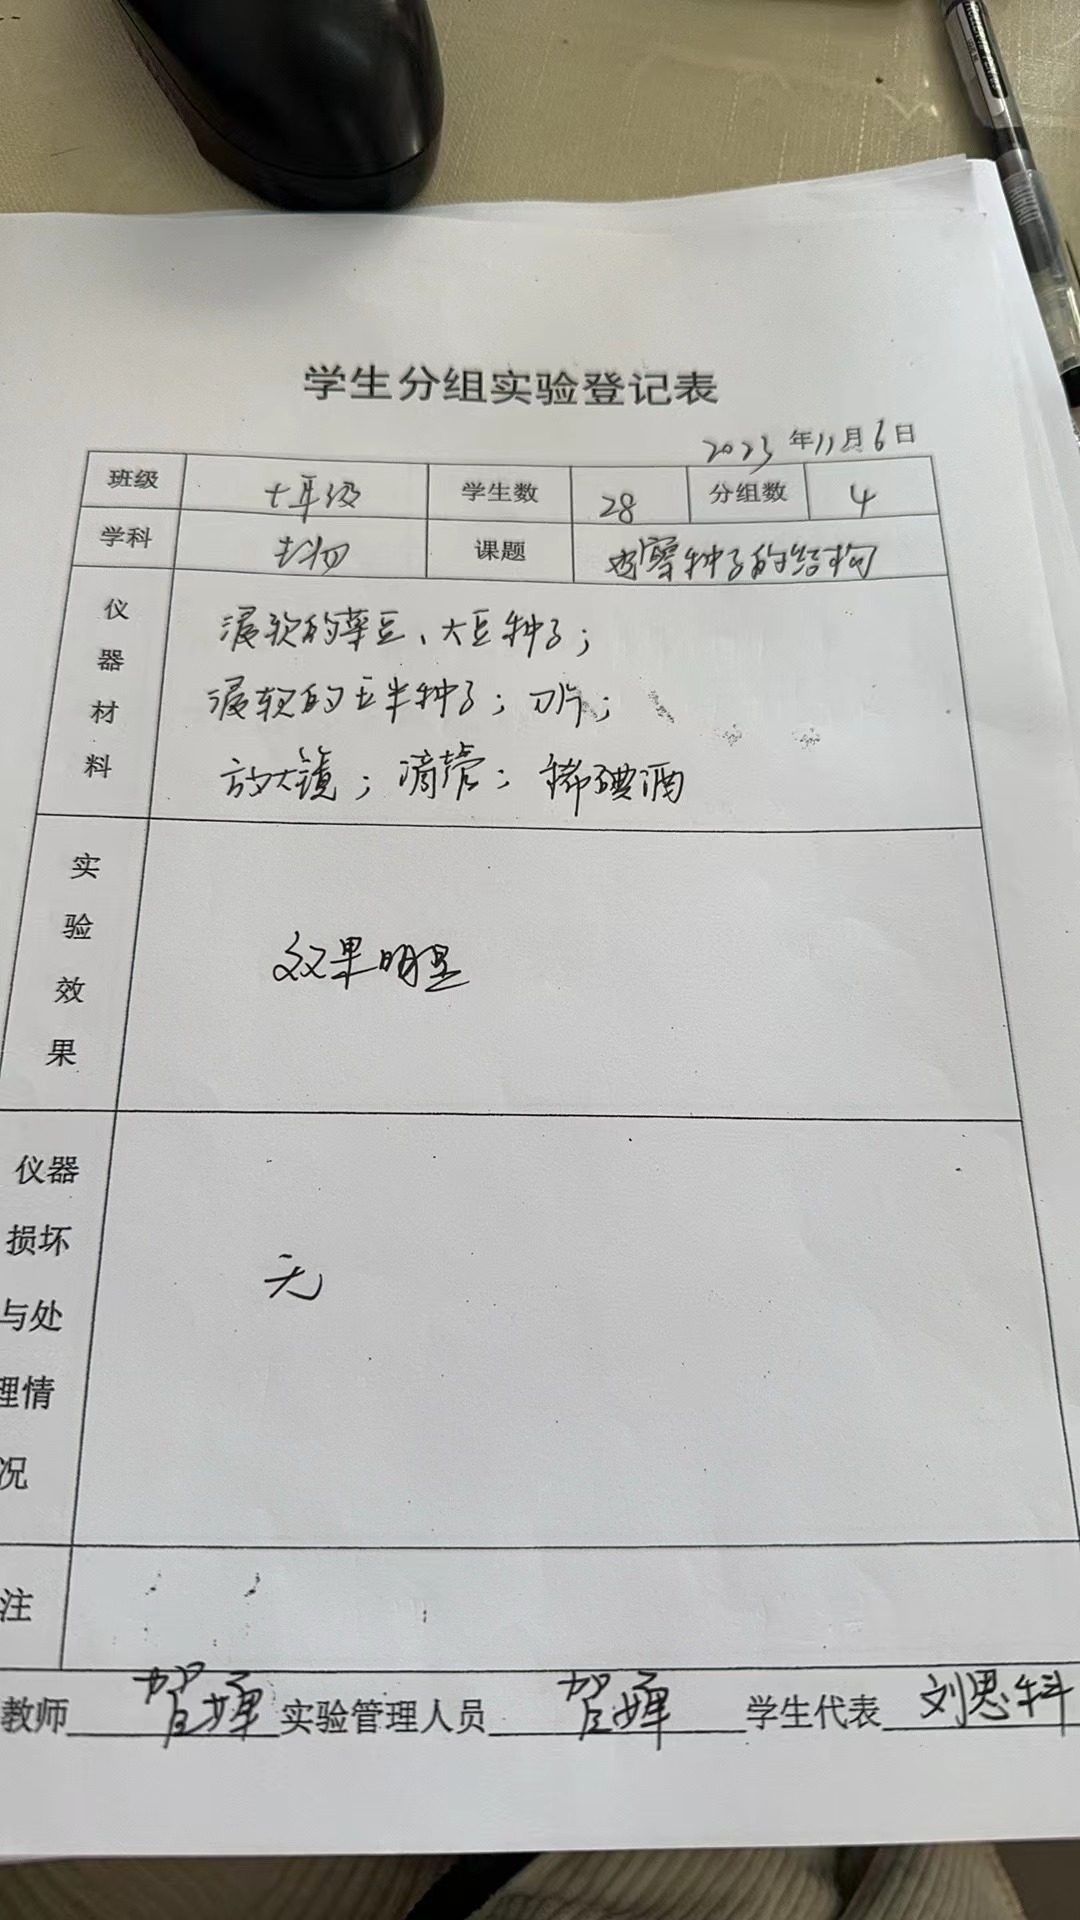 学生分组实验登记表
2023年11月6日
班级 七年级 学生数 28 分组数 4
学科 生物 课题 观察种子的结构
仪器材料 浸软的菜豆、大豆种子;
浸软的玉米种子;刀片;
放大镜;滴管;稀碘酒
实验效果 效果明显
仪器
损坏
与处
理情
况
无
注
教师 贺婵 实验管理人员 贺婵 学生代表 刘思科